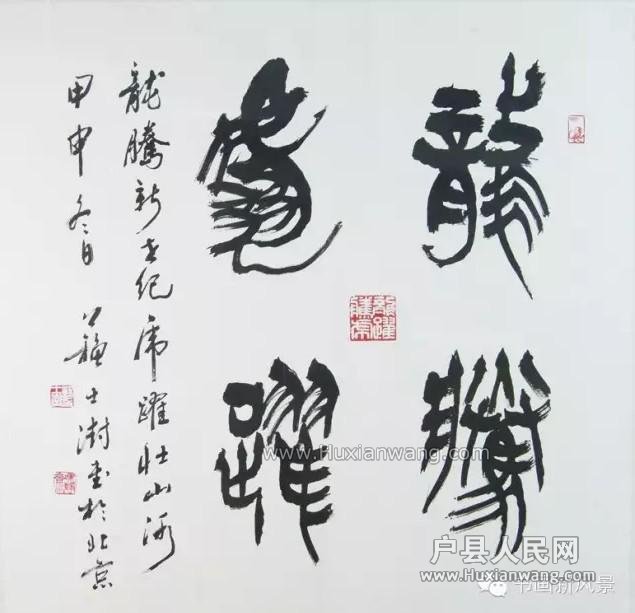 龍騰
虎躍
龍騰新世紀虎躍壯山河
甲申冬日蘇士澍书於北京
www.Huxianwang.com
户县人民网
www.Huxianwang.com
书画新风景